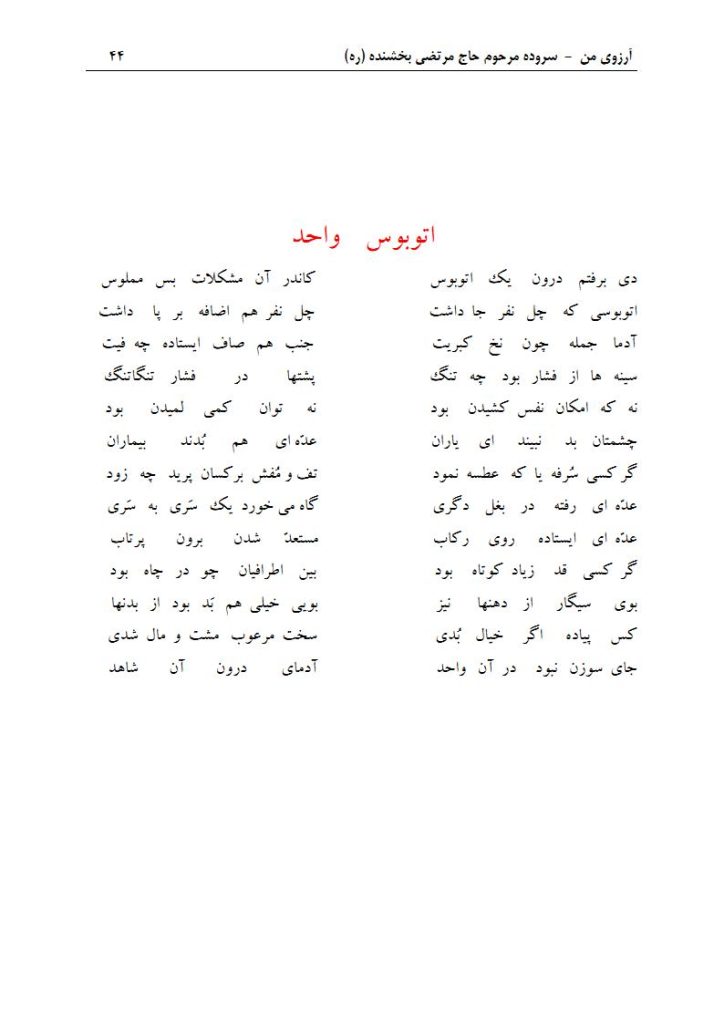 آرزوی من - سروده مرحوم حاج مرتضی بخشنده (ره) ۴۴
اتوبوس واحد
دی برفتم درون یک اتوبوس کاندر آن مشکلات بس مملوس
اتوبوسی که چل نفر جا داشت چل نفر هم اضافه بر پا داشت
آدما جمله چون نخ کبریت جنب هم صاف ایستاده چه فیت
سینه ها از فشار بود چه تنگ پشتها در فشار تنگاتنگ
نه که امکان نفس کشیدن بود نه توان کمی لمیدن بود
چشمتان بد نبیند ای یاران عدّه ای هم بُدند بیماران
گر کسی سُرفه یا که عطسه نمود تف و مُفش برکسان پرید چه زود
عدّه ای رفته در بغل دگری گاه می خورد یک سَری به سَری
عدّه ای ایستاده روی رکاب مستعدّ شدن برون پرتاب
گر کسی قد زیاد کوتاه بود بین اطرافیان چو در چاه بود
بوی سیگار از دهنها نیز بویی خیلی هم بَد بود از بدنها
کس پیاده اگر خیال بُدی سخت مرعوب مشت و مال شدی
جای سوزن نبود در آن واحد آدمای درون آن شاهد